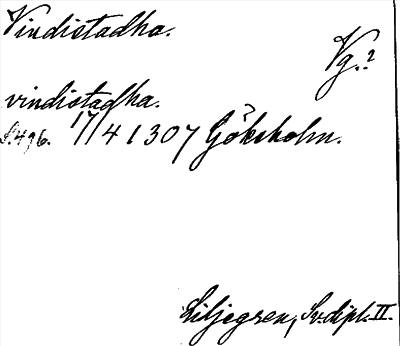 Vindistadha.
Vg.?
vindistadha.
S.496. 17/4 1307 Göksholm.
Liljegren, Sv. dipl. II.